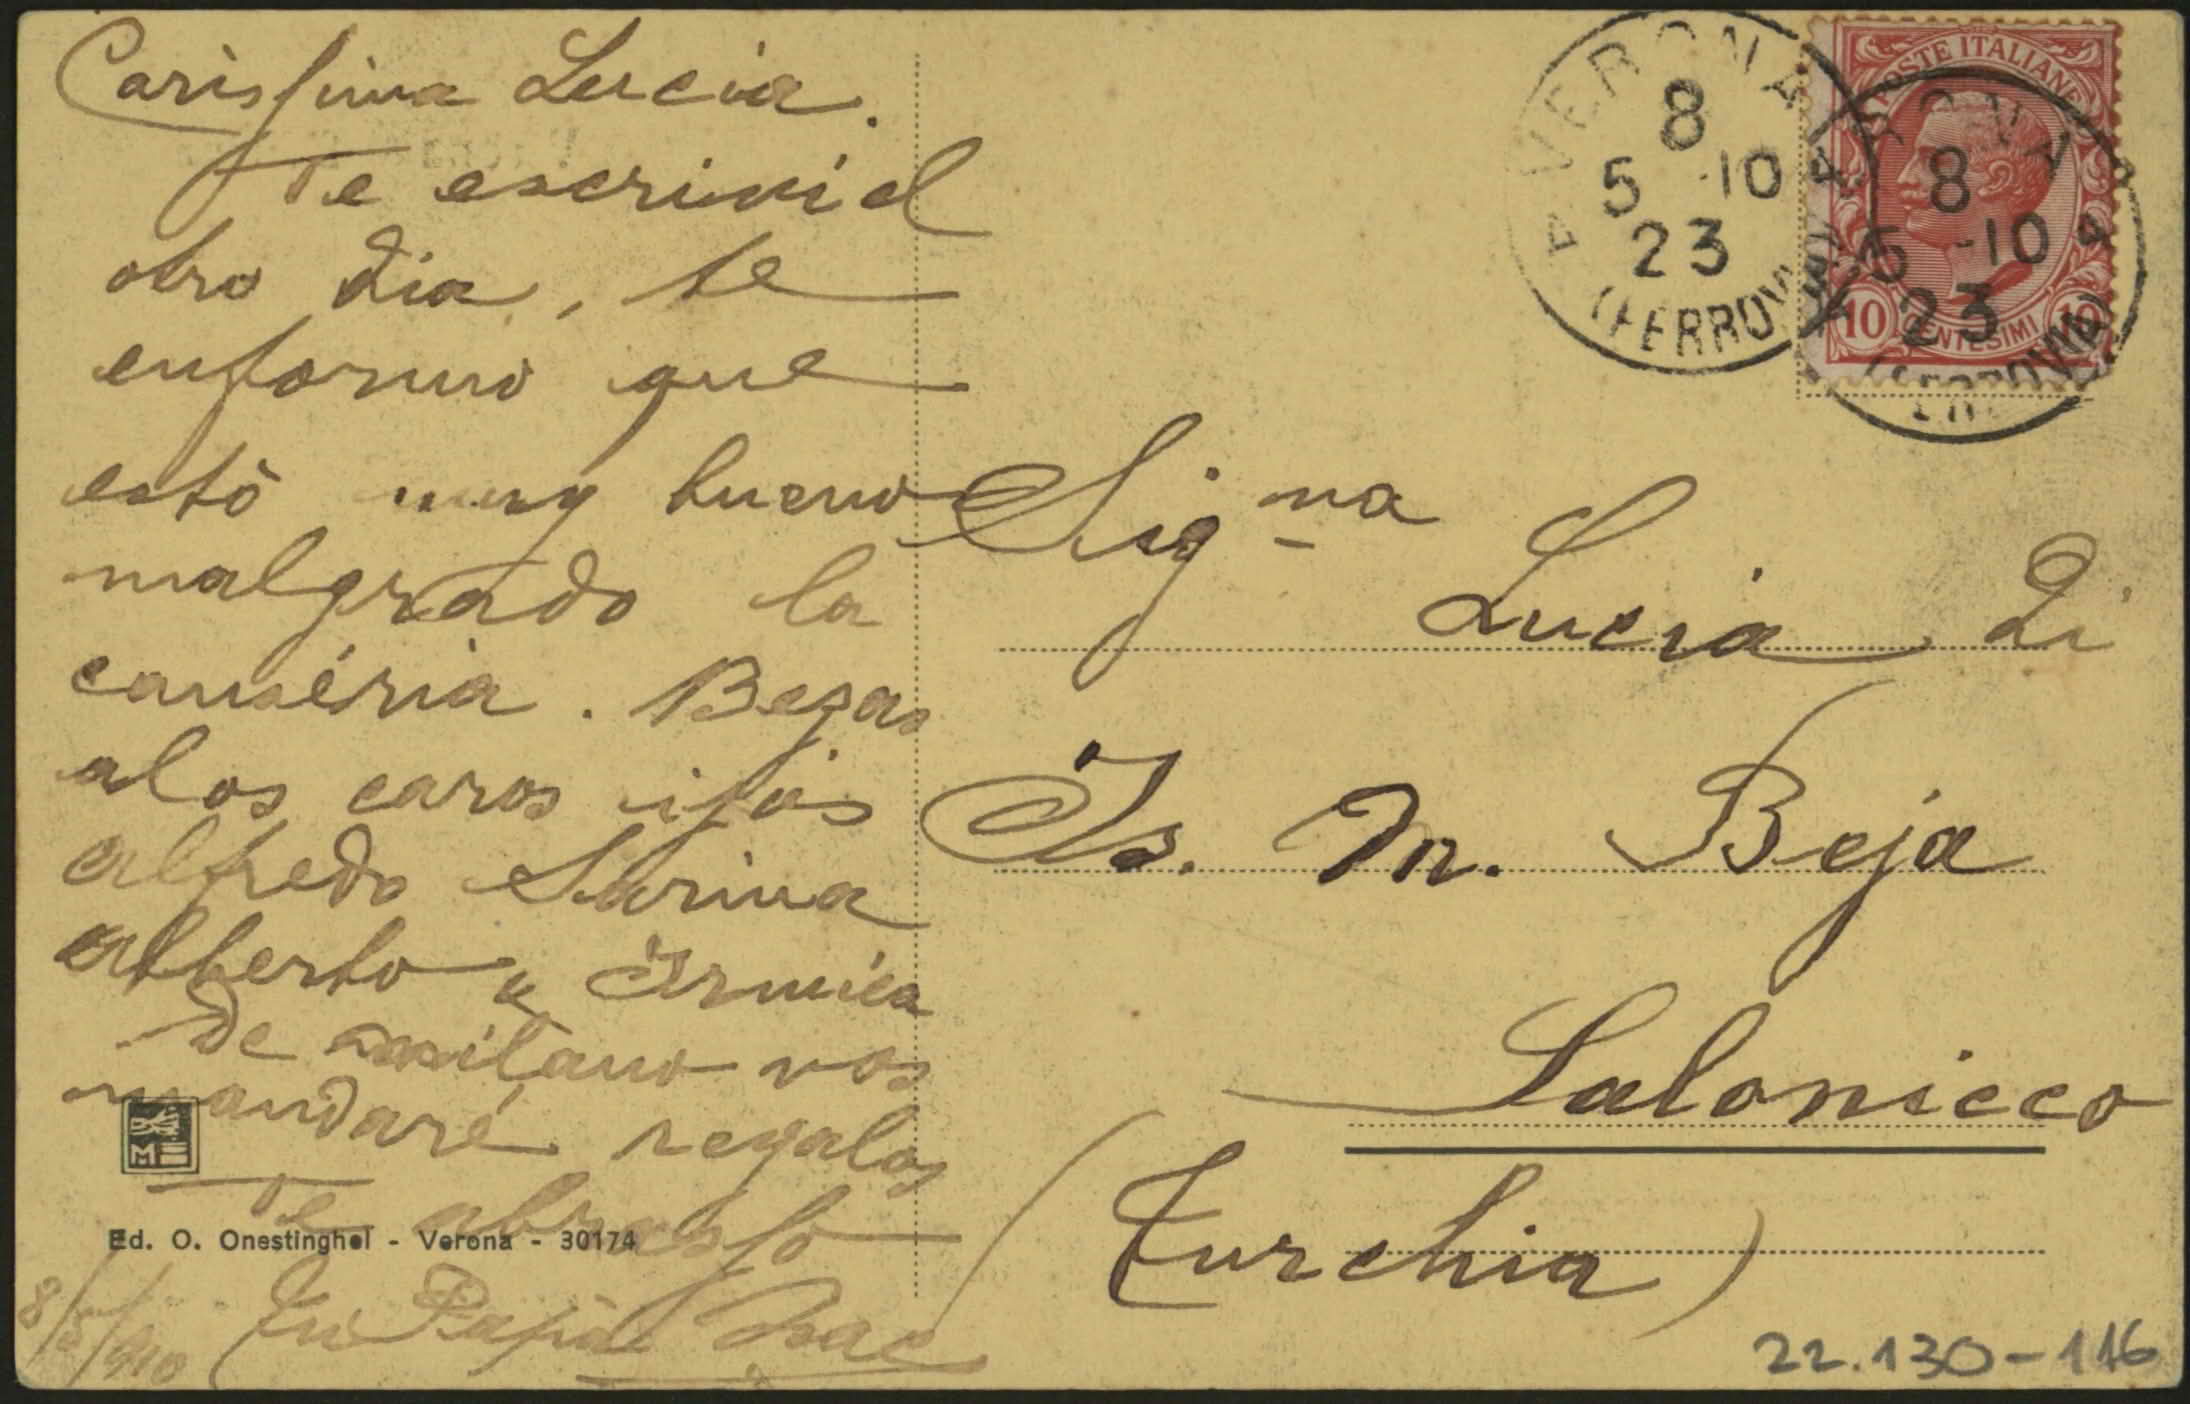 Carissima Lucia.
Te escrivi el
otro dia, te
enformo que
estò muy bueno
malgrado la
cansería. Bezas
alos caros ijos
Alfredo Sarina
Alberto y Irmica
De Milano vos
mandaré regalos
Te abrasso
Tu Papà Isac
8/5/910
ME
Ed. O. Onestinghel - Verona - 30174
VERONA
8
5 -10
23
(FERROVIA)
POSTE ITALIANE
10 CENTESIMI 10
VERONA
8
5 -10
23
(FERROVIA)
Sig.na
Lucia di
Is. M. Beja
Salonicco
(Turchia)
22.130-116